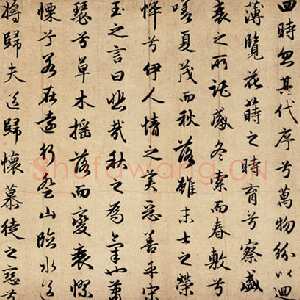 四時忽其代序兮萬物紛以迴
薄覽花蒔之時育兮察盛
衰之所託感冬索而春敷兮
嗟夏茂而秋落雖末士之榮
悴兮伊人情之美惡善乎宋
玉之言曰悲哉秋之為氣也蕭
瑟兮草木搖落而變衰憀
慄兮若在遠行登山臨水送
將歸夫送歸懷慕徒之戀兮